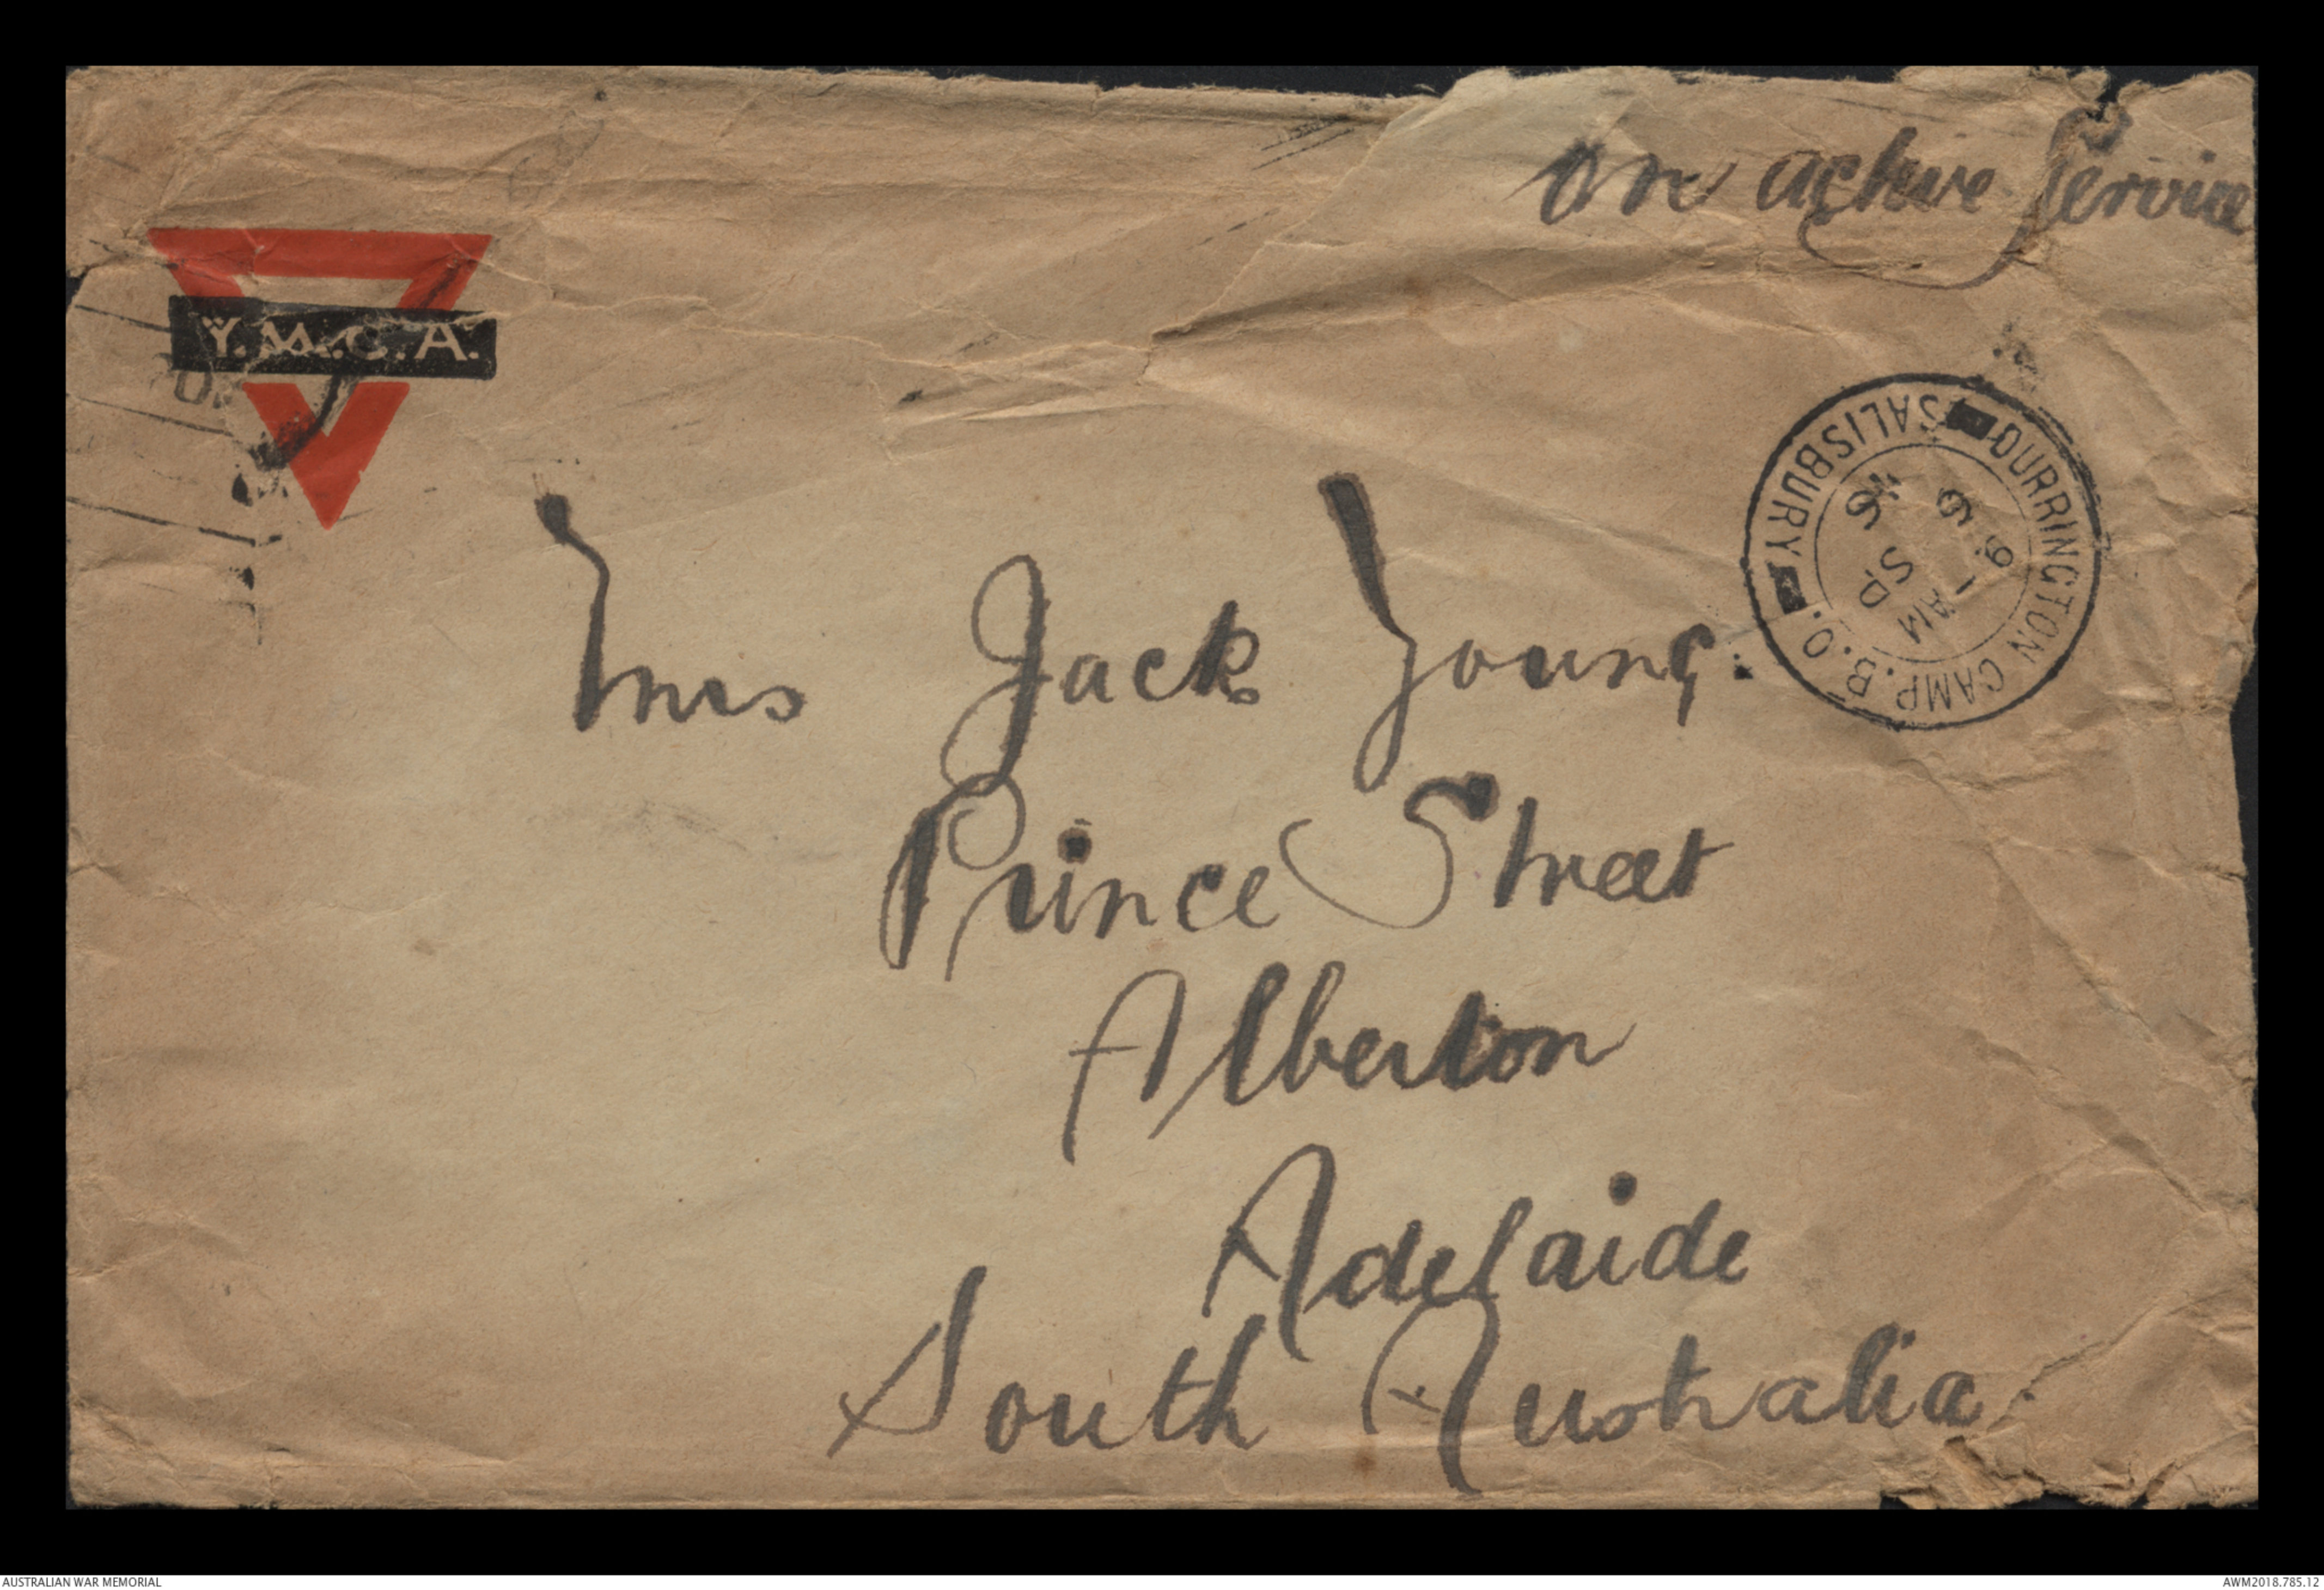 on active Service
Y.M.C.A.
DURRINGTON CAMP. B. O. SALISBURY
9 - AM
6 SP
16
Mrs Jack Young.
Prince Street
Alberton
Adelaide
South Australia.
AUSTRALIAN WAR MEMORIAL
AWM2018.785.12